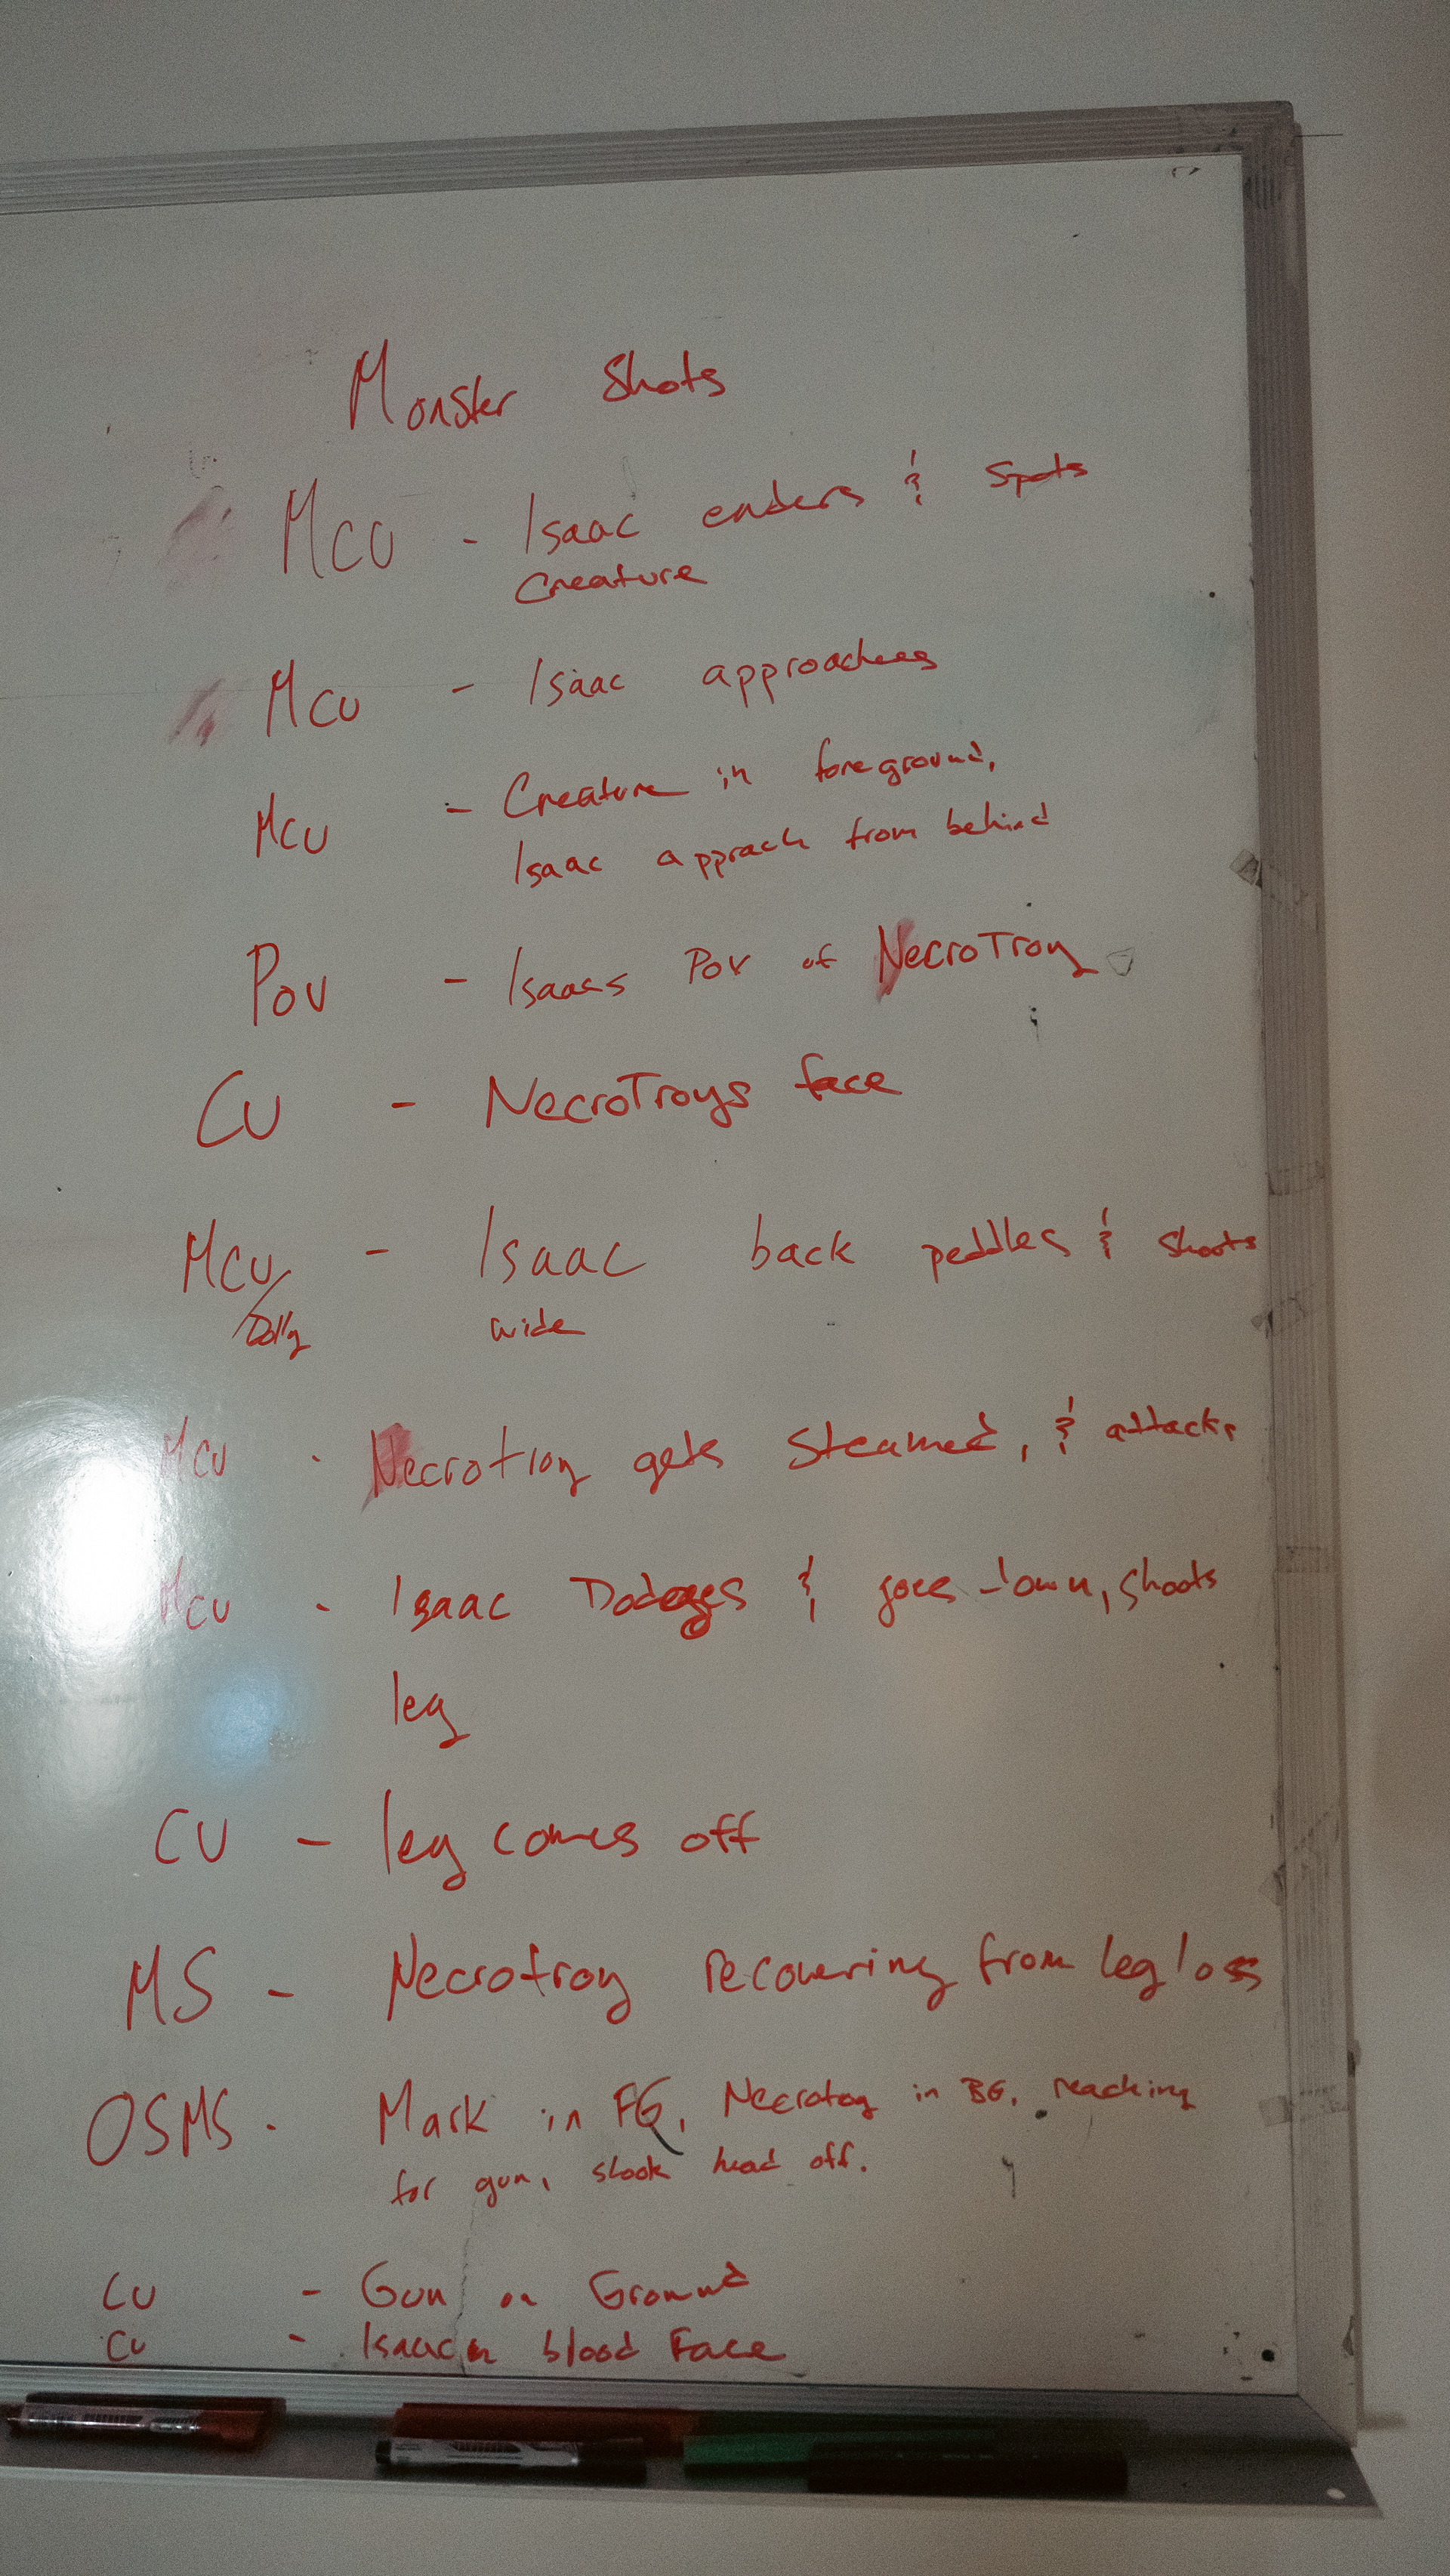 Monster Shots
MCU - Isaac enders & Spots
Creature
MCU - Isaac approaches
MCU - Creature in foreground,
Isaac apprach from behind
POV - Isaacs POV of NecroTroy
CU - NecroTroys face
MCU - Isaac back peddles & shoots
/Dolly wide
MCU - Necrotroy gets Steamed, & attacks
MCU - Isaac Dodges & goes down, shoots
leg
CU - leg comes off
MS - Necrotroy recovering from leg loss
OSMS - Mark in FG, Necrotroy in BG, reaching
for gun, head off.
CU - Gun on Ground
CU - blood Face